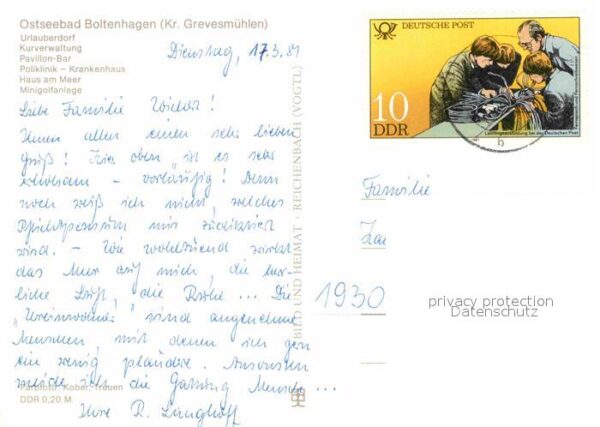 Ostseebad Boltenhagen (Kr. Grevesmühlen)
Urlauberdorf
Kurverwaltung
Pavillon-Bar
Poliklinik – Krankenhaus
Haus am Meer
Minigolfanlage
Dienstag, 17.3.81
Liebe Familie
Ihnen allen einen sehr lieben
Gruß! Hier oben ist es sehr
erholsam – vorläufig! Denn
noch weiß ich nicht, welches
Pflichtpensum mir zudiktiert
wird. – Wie wohltuend wirkt
das Meer auf mich, die herr-
liche Luft, die Ruhe ... Die
"Ureinwohner" sind angenehme
Menschen, mit denen ich gern
ein wenig plaudere. Ansonsten
meide ich die Gattung Mensch ...
Ihre R. Langhoff
Farbfoto: Kober, Treuen
DDR 0,20 M
BILD UND HEIMAT · REICHENBACH (VOGTL)
DEUTSCHE POST
10
DDR
Lehrlingsausbildung bei der Deutschen Post
Familie
1930
privacy protection
Datenschutz